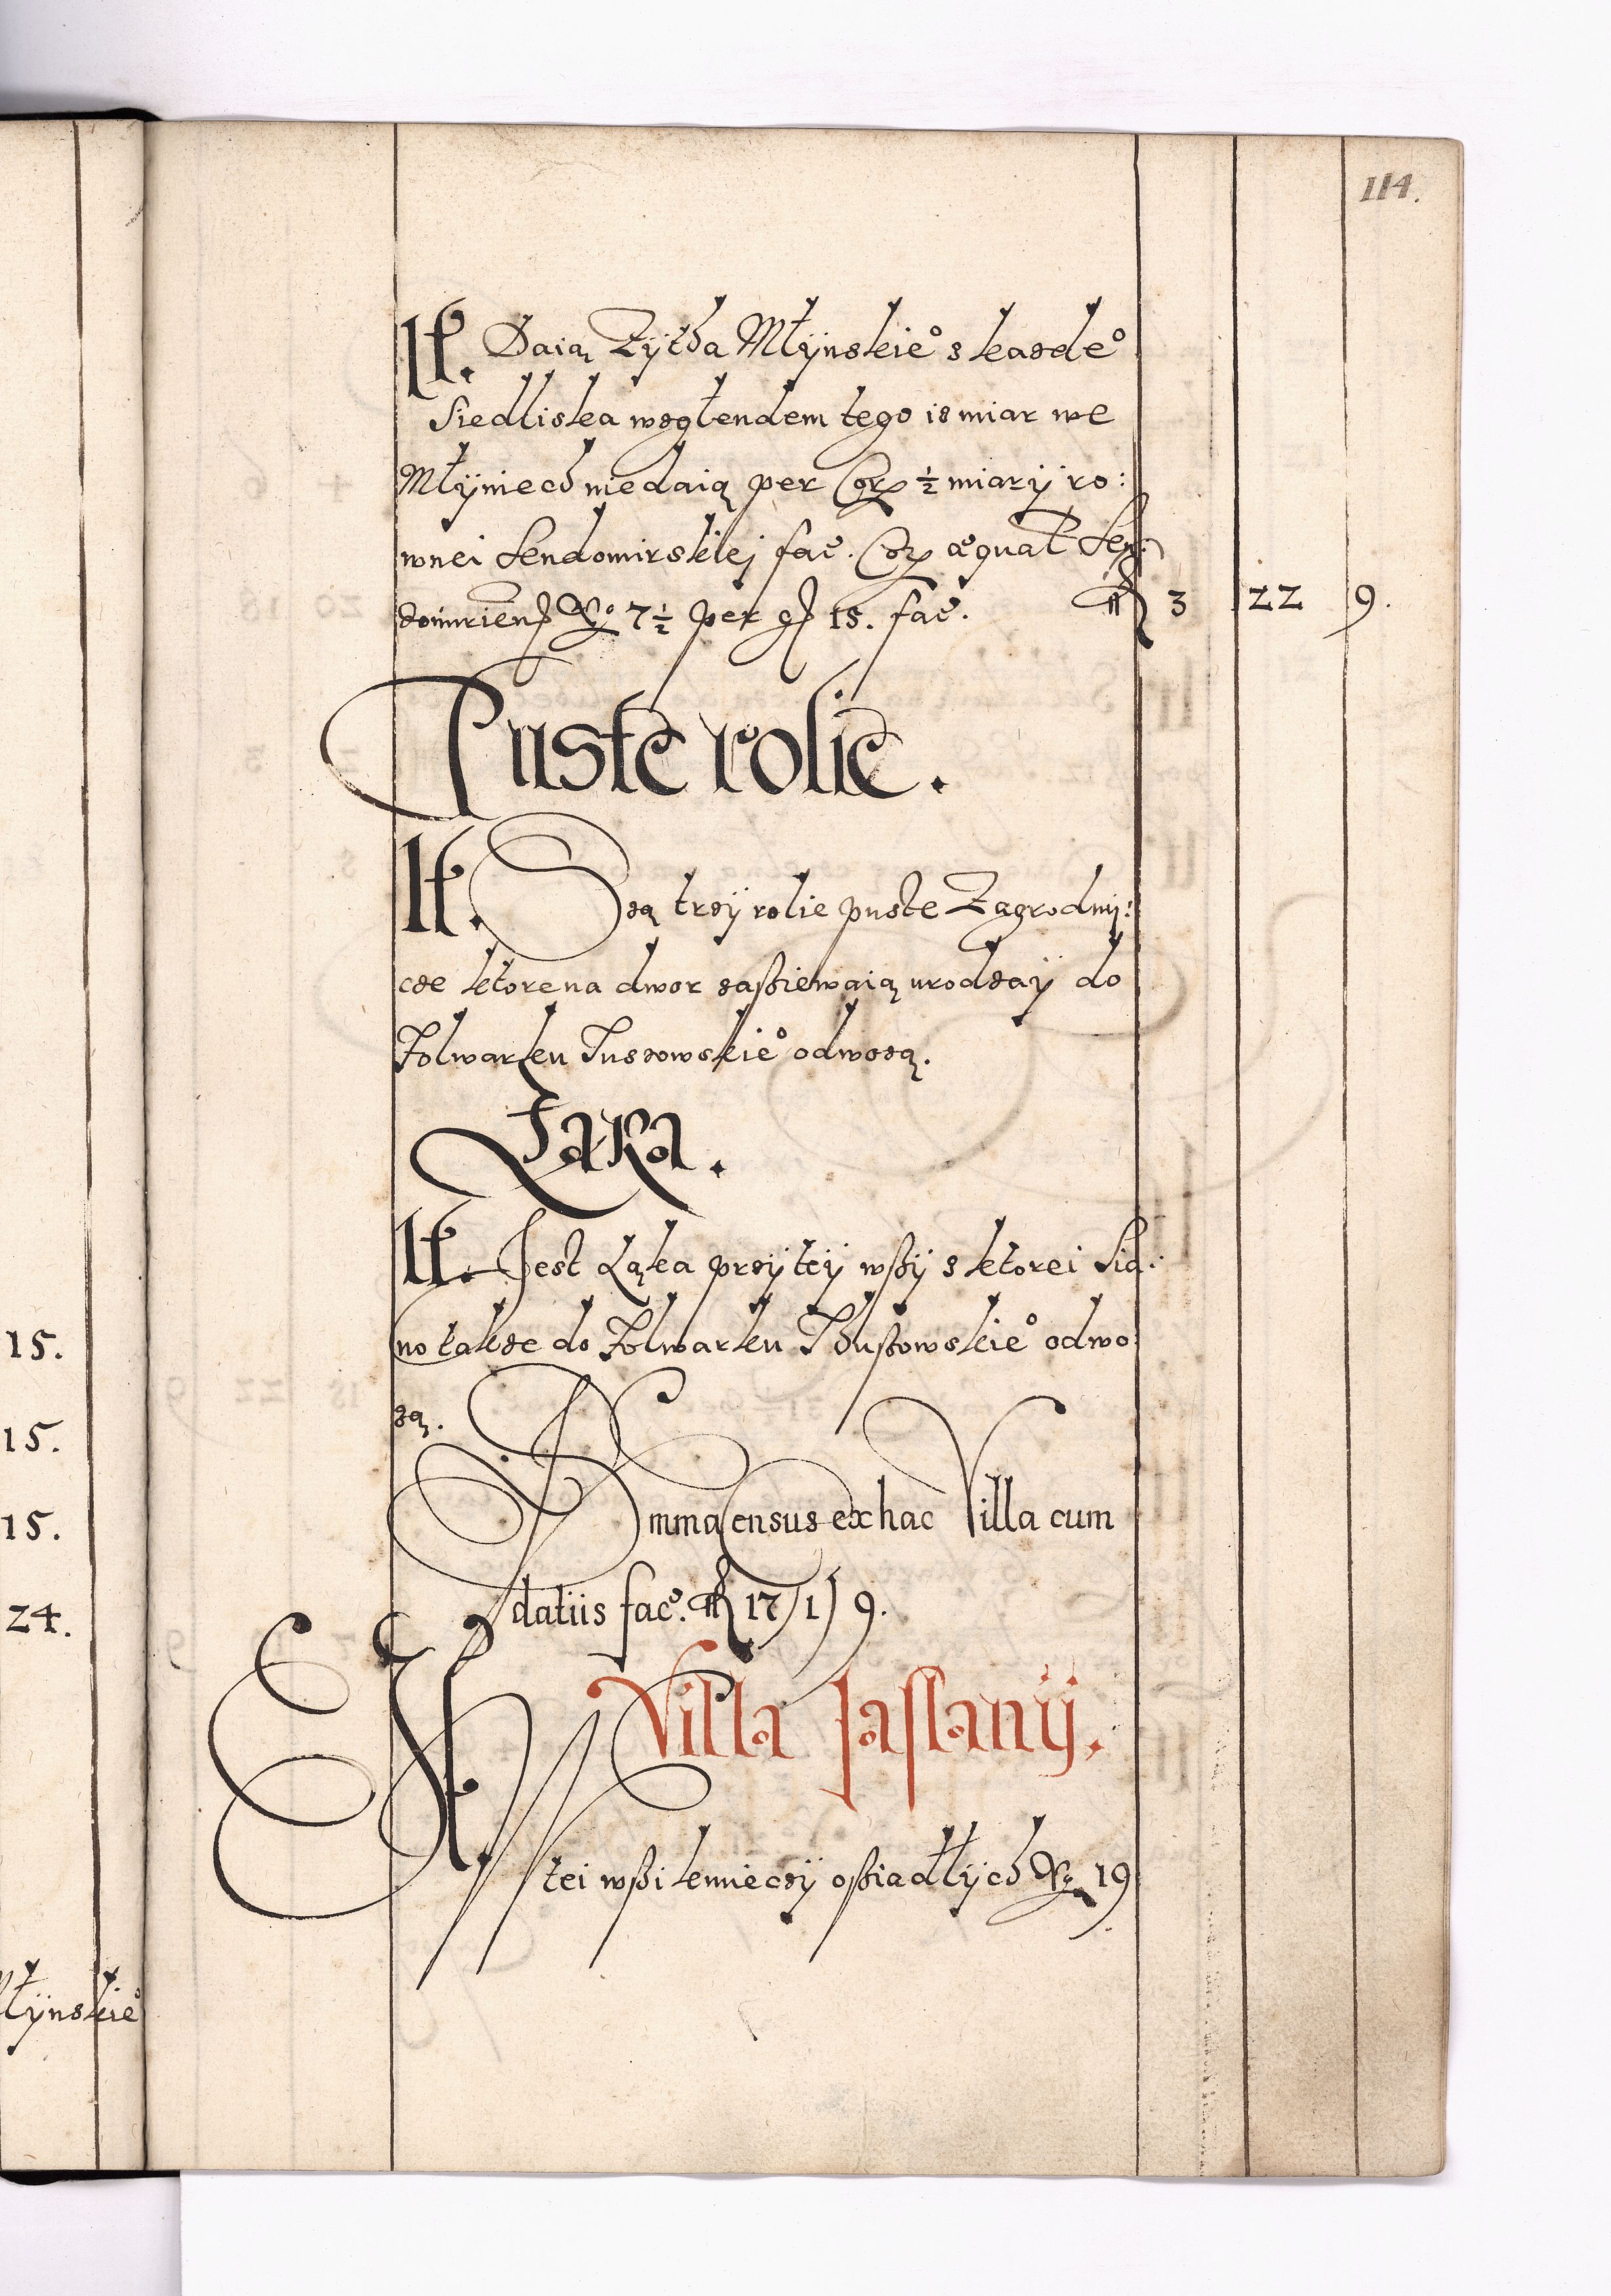 114.
It. Daią Zytha Młÿnskie° z kazde°
Siedliska wzglendem tego iz miar we
Młÿniech niedaią per Cor. ½ miarÿ ro:
wnei Sendomirskiej fac. Cor. æqual Sen:
domirien. N° 7½ per g 15. fac. 3 22 9.
Puste rolie.
It. Są trzÿ rolie puste Zagrodni:
cze ktore na dwor zaßiewaią urodzaÿ do
Folwarku Tuszowskie° odwozą.
Łąka.
It. Jest Łąka przÿ teÿ wßÿ z ktorei Sia:
no takze do Folwarku Thußowskie° odwo:
zą.
Summa Census ex hac Villa cum
datiis fac. 17 / 1 / 9.
Villa Jaslanÿ.
It. W tei wßi kmieczÿ oßiadłÿch N° 19
15.
15.
15.
24.
Młÿnskie°